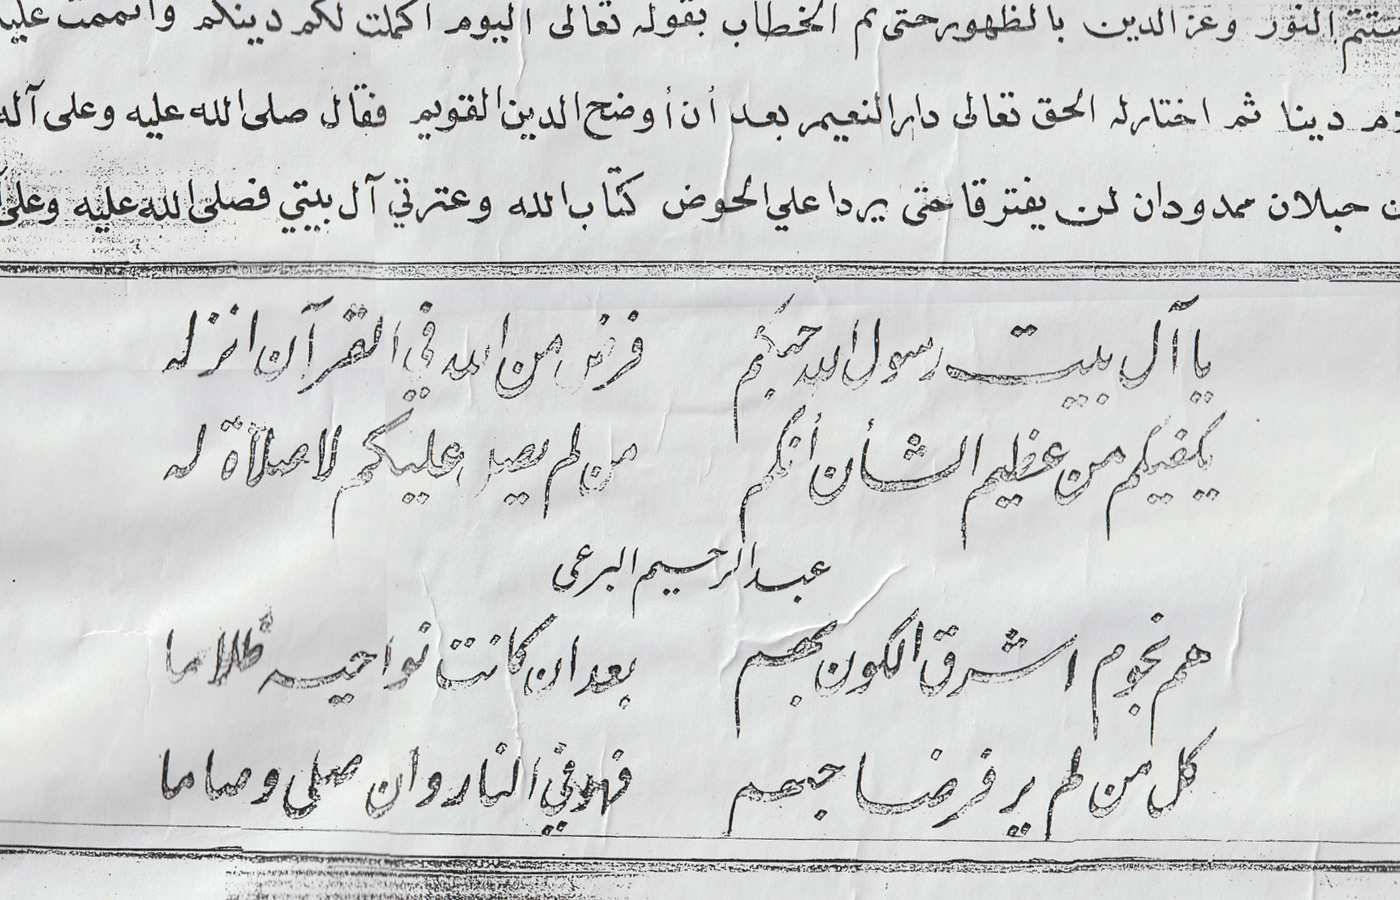 النور وعز الدين بالظهور حتى تم الخطاب بقوله تعالى اليوم اكملت لكم دينكم واتممت
دينا ثم اختار له الحق تعالى دار النعيم بعد أن أوضح الدين القويم فقال صلى الله عليه وعلى آله
حبلان ممدودان لن يفترقا حتى يردا علي الحوض كتاب الله وعترتي آل بيتي فصلى الله عليه وعلى
يا آل بيت رسول الله حبكم فرض من الله في القرآن انزله
يكفيكم من عظيم الشأن أنكم من لم يصل عليكم لا صلاة له
عبد الرحيم البرعى
هم نجوم اشرق الكون بهم بعد ان كانت نواحيه ظلاما
كل من لم ير فرضا حبهم فهو في النار وان صلى وصاما